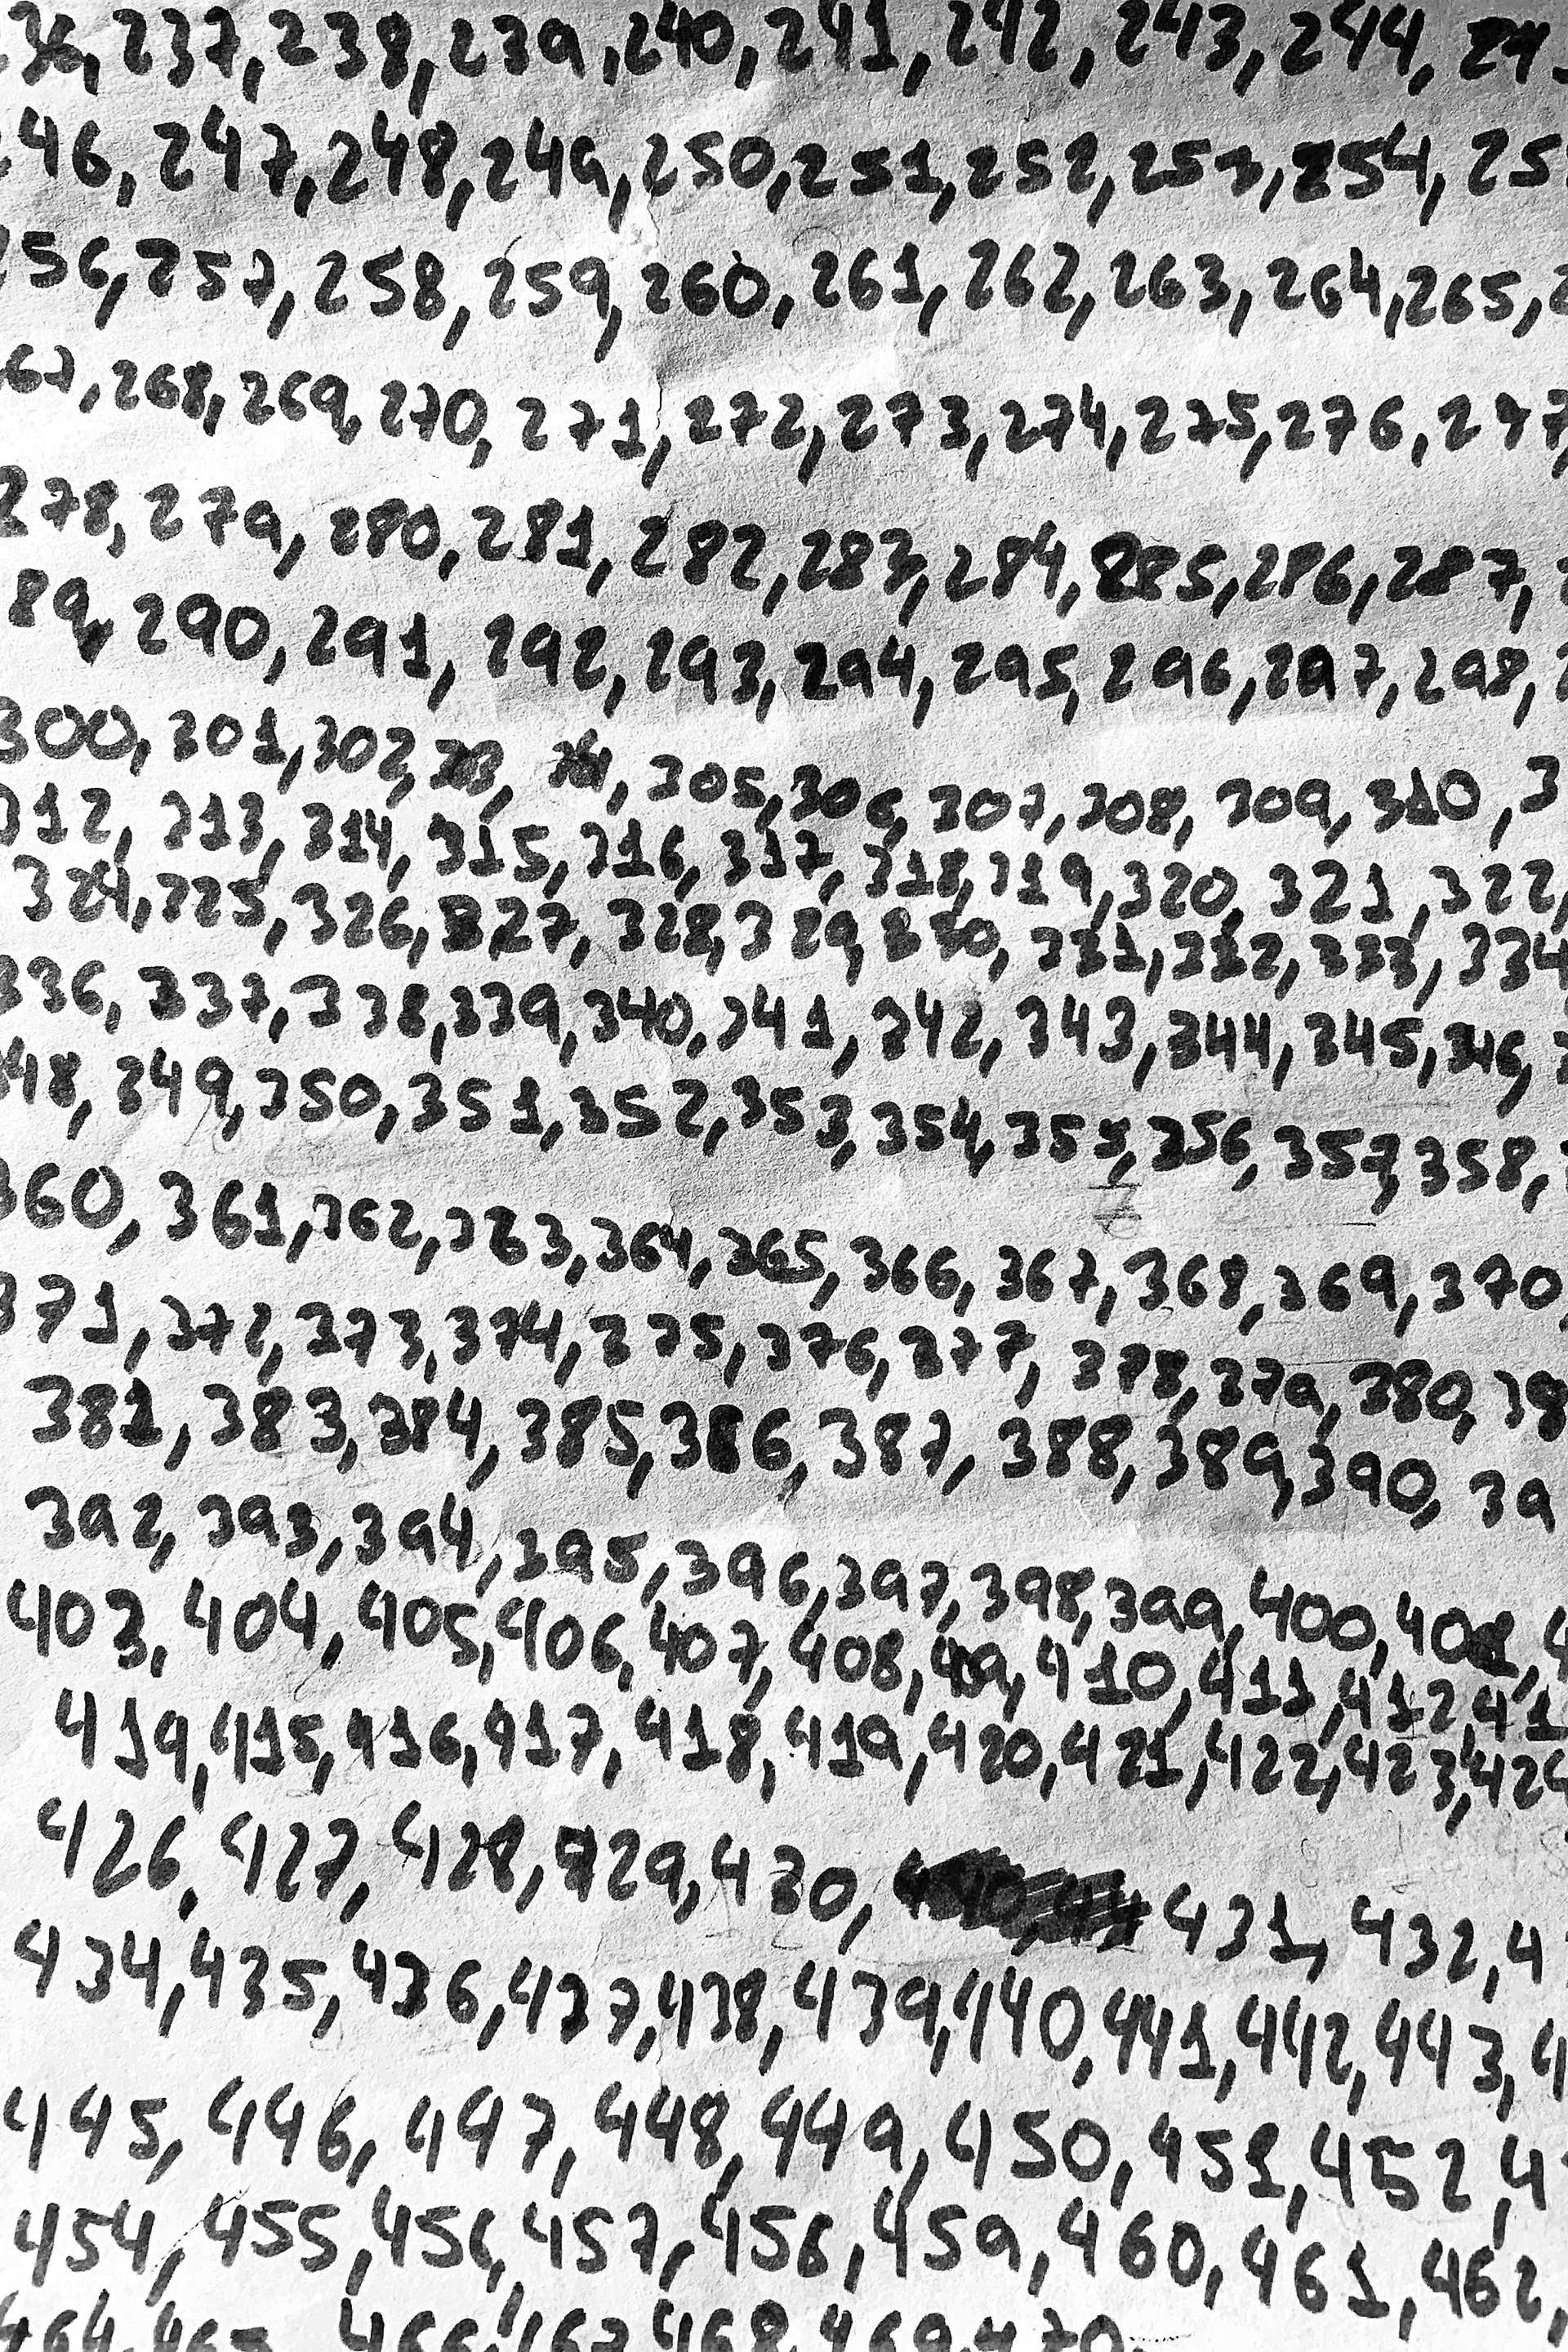 36, 237, 238, 239, 240, 241, 242, 243, 244, 24
46, 247, 248, 249, 250, 251, 252, 253, 254, 25
56, 257, 258, 259, 260, 261, 262, 263, 264, 265,
67, 268, 269, 270, 271, 272, 273, 274, 275, 276, 277
278, 279, 280, 281, 282, 283, 284, 285, 286, 287,
89, 290, 291, 292, 293, 294, 295, 296, 297, 298,
300, 301, 302, 303, 304, 305, 306, 307, 308, 309, 310, 3
312, 313, 314, 315, 316, 317, 318, 319, 320, 321, 322,
324, 325, 326, 327, 328, 329, 330, 331, 332, 333, 334
336, 337, 338, 339, 340, 341, 342, 343, 344, 345, 346,
48, 349, 350, 351, 352, 353, 354, 355, 356, 357, 358,
360, 361, 362, 363, 364, 365, 366, 367, 368, 369, 370,
371, 372, 373, 374, 375, 376, 377, 378, 379, 380, 38
381, 383, 384, 385, 386, 387, 388, 389, 390, 39
392, 393, 394, 395, 396, 397, 398, 399, 400, 401, 4
403, 404, 405, 406, 407, 408, 409, 410, 411, 412, 41
419, 415, 416, 417, 418, 419, 420, 421, 422, 423, 424
426, 427, 428, 429, 430, 431, 432, 4
434, 435, 436, 437, 438, 439, 440, 441, 442, 443, 4
445, 446, 447, 448, 449, 450, 451, 452, 4
454, 455, 456, 457, 456, 459, 460, 461, 462,
464, 465, 466, 467, 468, 469, 470